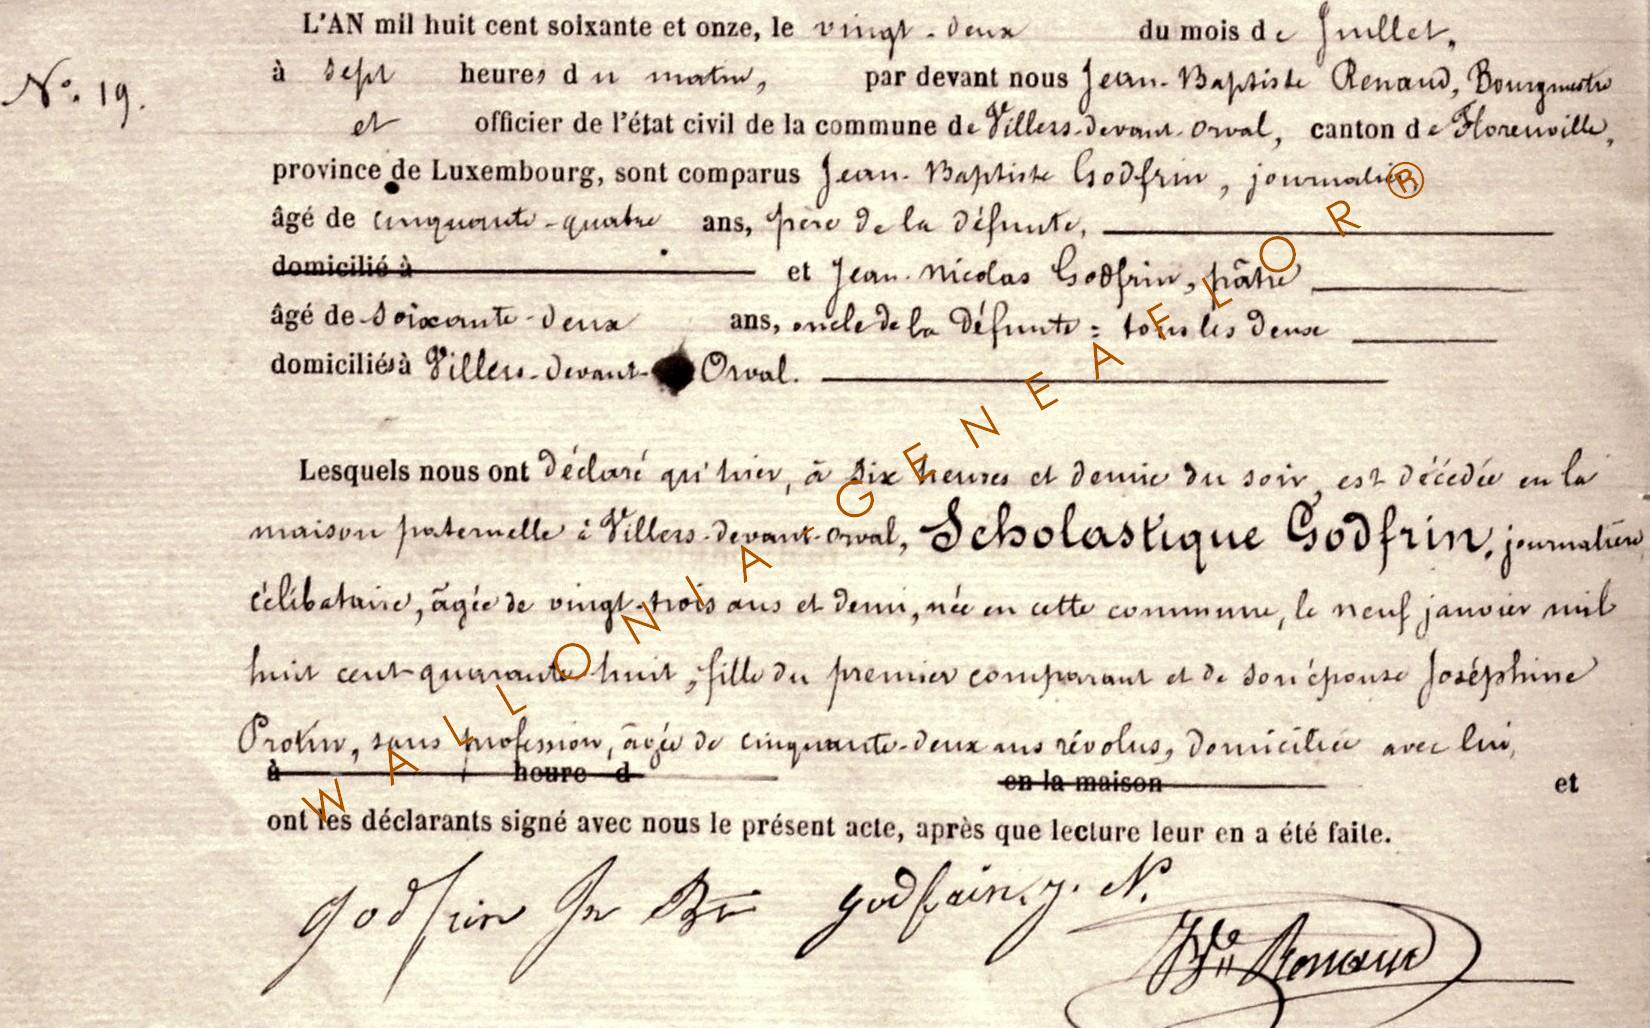 L'AN mil huit cent soixante et onze, le vingt-deux du mois de Juillet,
N.o 19. à sept heures du matin, par devant nous Jean-Baptiste Renaud, Bourgmestre
et officier de l'état civil de la commune de Villers-devant-Orval, canton de Florenville,
province de Luxembourg, sont comparus Jean-Baptiste Godfrin, journalier,
âgé de cinquante-quatre ans, père de la défunte,
domicilié à et Jean-Nicolas Godfrin, pâtre
âgé de soixante-deux ans, oncle de la défunte: tous les deux
domiciliés à Villers-devant-Orval.
Lesquels nous ont déclaré qu'hier, à six heures et demie du soir, est décédée en la
maison paternelle à Villers-devant-Orval, Scholastique Godfrin, journalière
célibataire, âgée de vingt-trois ans et demi, née en cette commune, le neuf janvier mil
huit cent quarante huit, fille du premier comparant et de son épouse Joséphine
Protin, sans profession, âgée de cinquante-deux ans révolus, domiciliée avec lui,
à heure d en la maison et
ont les déclarants signé avec nous le présent acte, après que lecture leur en a été faite.
godfrin Jn Bte godfrin. j. N.
Renaud
WALLONIA-GENEAFLOR®